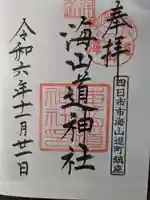 奉拝
四日市市海山道町鎮座
海山道神社
令和六年十二月廿一日